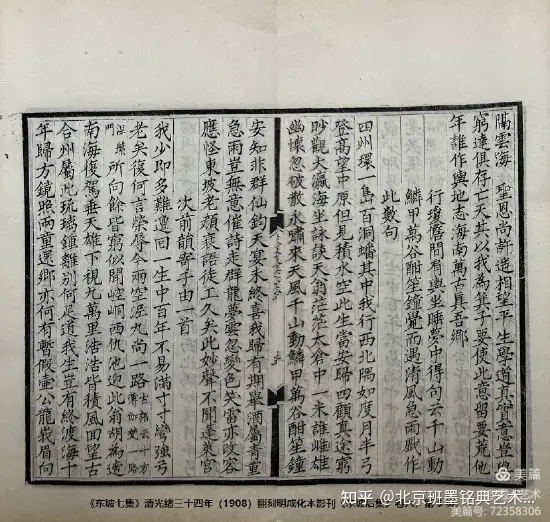 隔雲海　聖恩尚許遥相望平生學道真實意豈與
窮達俱存亡天其以我為箕子要使此意留要荒他
年誰作輿地志海南萬古真吾鄉
行瓊儋間肩輿坐睡夢中得句云千山動
鱗甲萬谷酣笙鐘覺而遇清風急雨戲作
此數句
四州環一島百洞蟠其中我行西北隅如度月半弓
登高望中原但見積水空此生當安歸四顧真途窮
眇觀大瀛海坐詠談天翁茫茫太倉中一米誰雌雄
幽懷忽破散永嘯來天風千山動鱗甲萬谷酣笙鐘
安知非群仙鈞天宴未終喜我歸有期舉酒屬青童
急雨豈無意催詩走群龍夢雲忽變色笑電亦改容
應怪東坡老顏衰語徒工久矣此妙聲不聞蓬萊宫
次前韻寄子由一首
我少即多難邅回一生中百年不易滿寸寸彎強弓
老矣復何言榮辱今兩空泥洹尚一路古語云十方薄伽梵一路
涅槃門所向餘皆窮似聞崆峒西仇池迎此翁胡為適
南海復駕垂天雄下視九萬里浩浩皆積風回望古
合州屬此琉璃鍾離别何足道我生豈有終渡海十
年歸方鏡照兩童還鄉亦何有暫假壺公龍峨眉向
《东坡七集》清光绪三十四年（1908）翻刻明成化本影刊
知乎 @北京班墨铭典艺术...
美篇
美篇号: 72358306